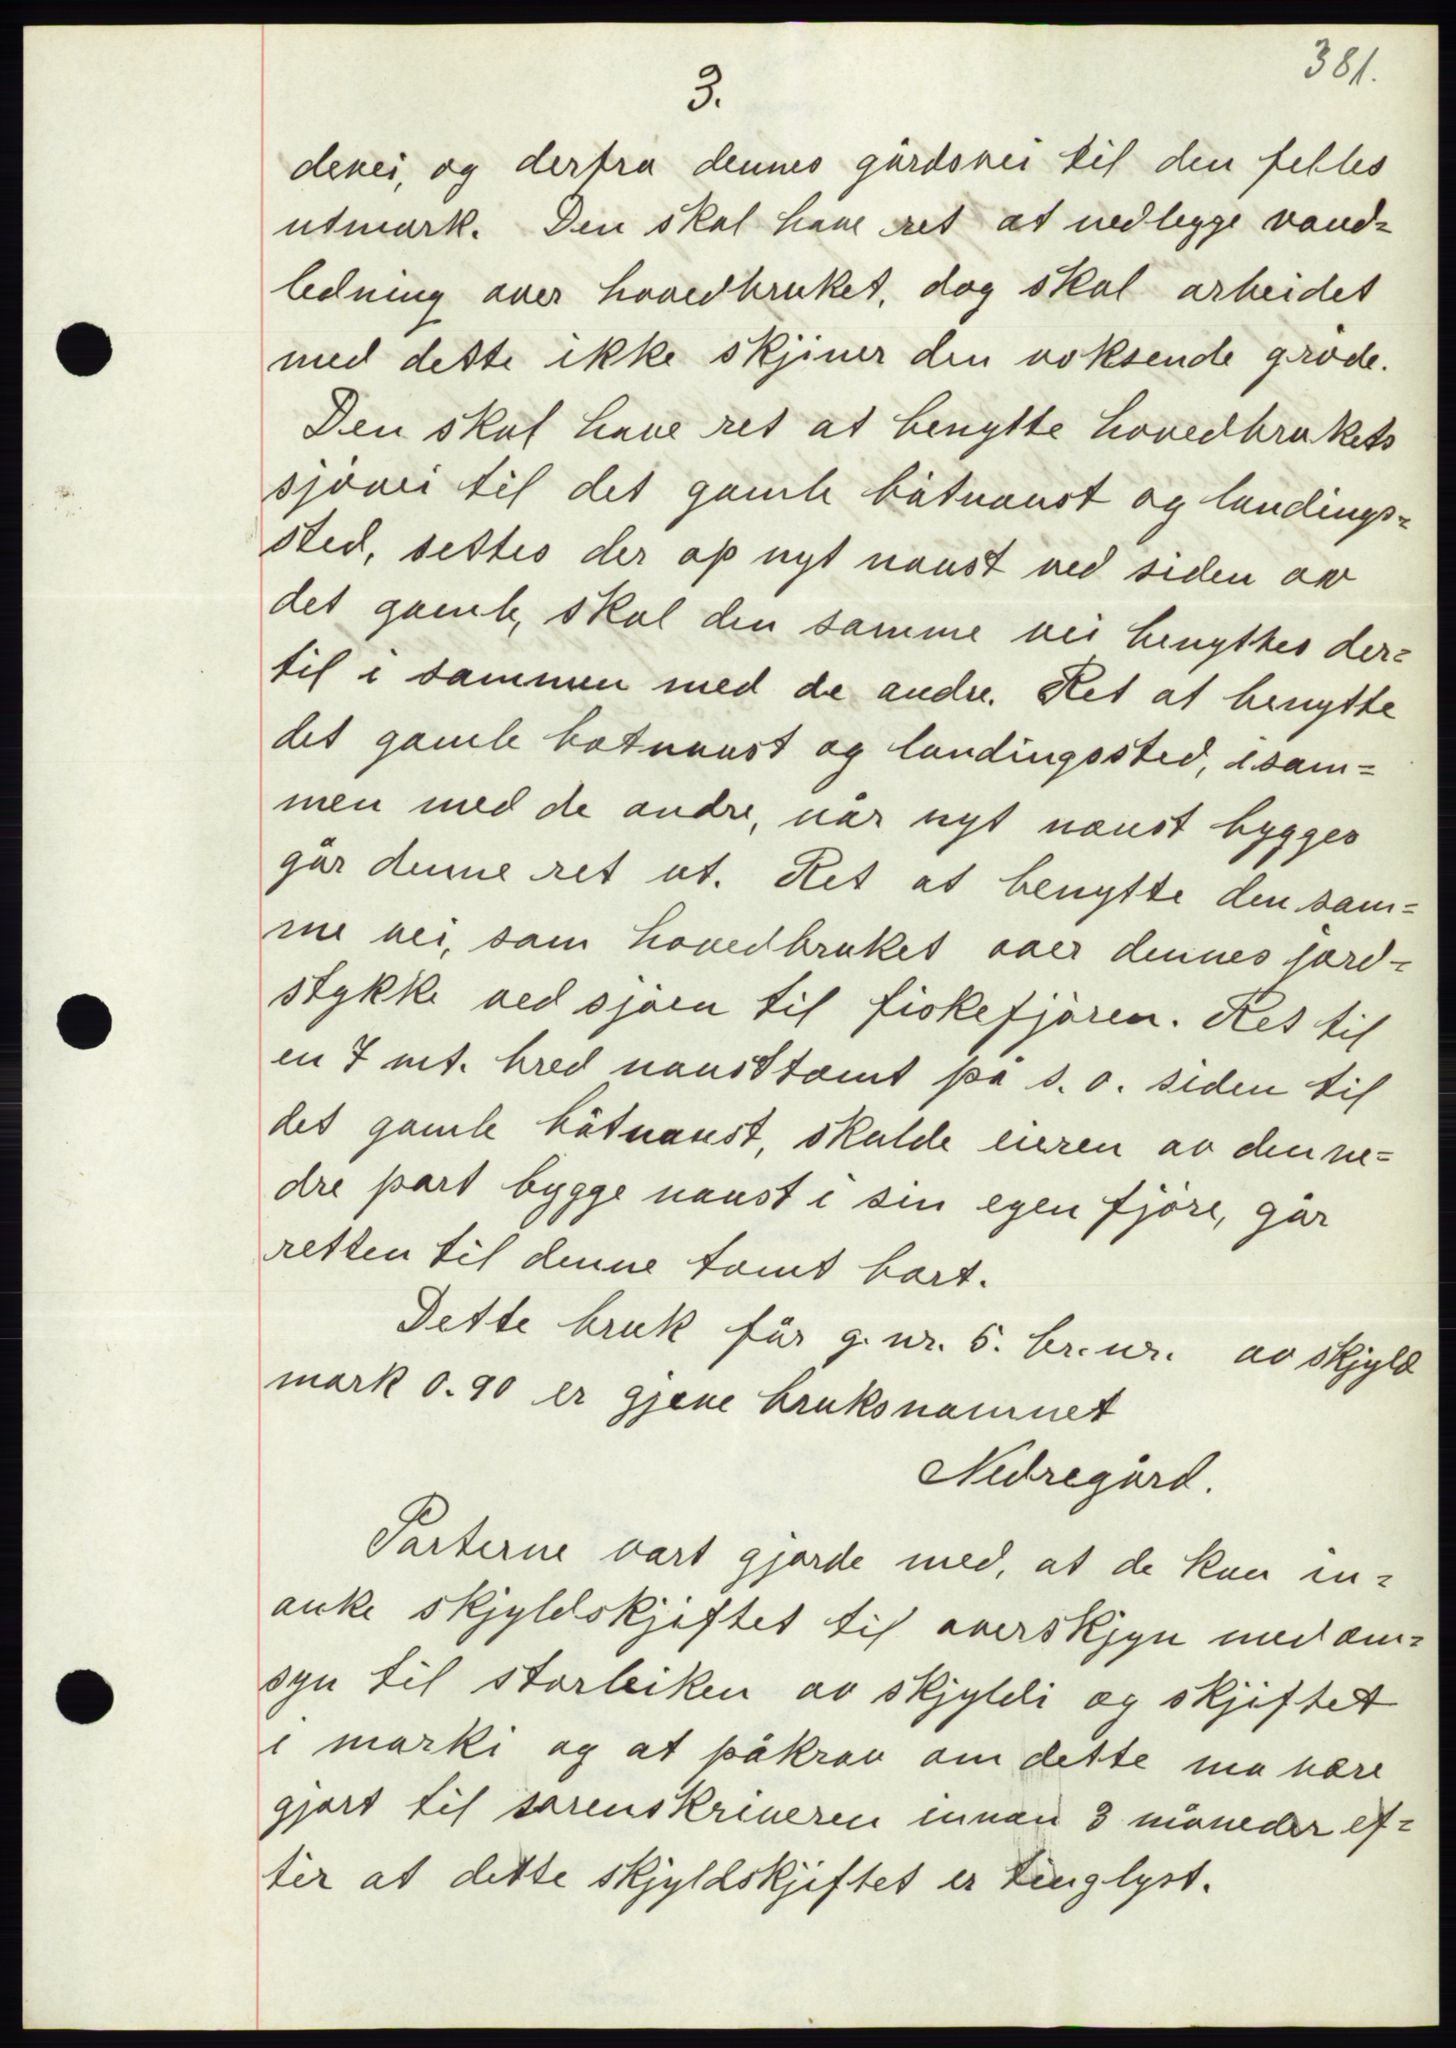 381.
3.
devei, og derfra dennes gårdsvei til den felles
utmark. Den skal have ret at nedlegge vand=
ledning over hovedbruket, dog skal arbeidet
med dette ikke skjiner den voksende gröde.
Den skal have ret at benytte hovedbrukets
sjövei til det gamle båtnaust og landings=
sted, settes der op nyt naust ved siden av
det gamle, skal den samme vei benyttes der=
til i sammen med de andre. Ret at benytte
det gamle botnaust og landingssted, isam=
men med de andre, når nyt naust bygges
går denne ret ut. Ret at benytte den sam=
me vei, som hovedbruket over dennes jord=
stykke ved sjöen til fiskefjören. Ret til
en 7 mt. bred nausttomt på s. o. siden til
det gamle båtnaust, skulde eieren av den ne=
dre part bygge naust i sin egen fjöre, går
retten til denne tomt bort.
Dette bruk får g. nr. 5. br. nr. av skjyld
mark 0.90 er gjeve bruksnamnet
Nedregård.
Parterne vart gjorde med, at de kan in=
anke skjyldskjiftet til overskjyn med om=
syn til storleiken av skjyldi og skjiftet
i marki og at påkrav om dette ma være
gjort til sorenskriveren innan 3 måneder ef=
ter at dette skjyldskjiftet er tinglyst.